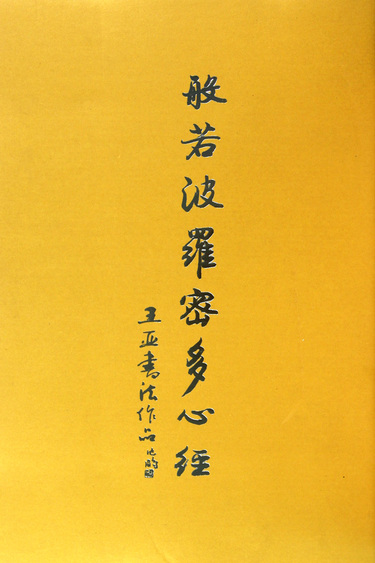 般若波羅密多心經
王亚書法作品